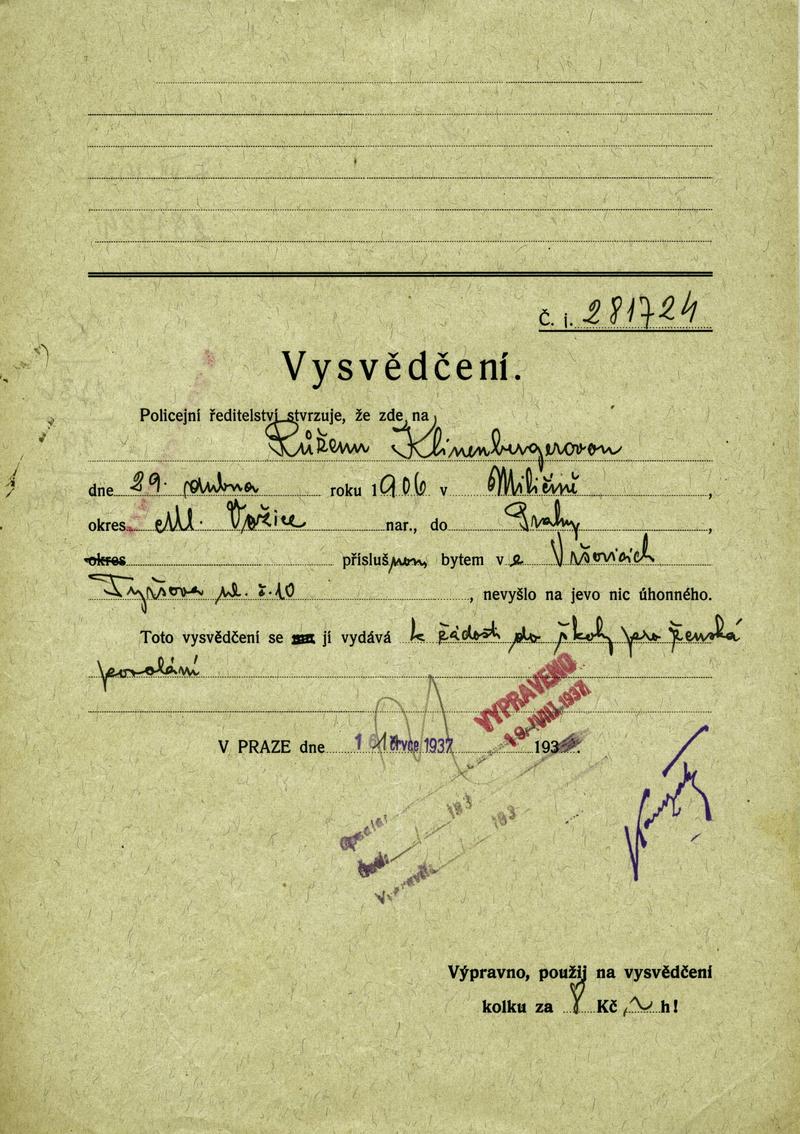 Č. j. 281724
Vysvědčení.
Policejní ředitelství stvrzuje, že zde na
Růženu Klimentovou
dne 29. roku 1906 v Miličíně,
okres Ml. Vožice nar., do Prahy,
okres přísluš bytem v Vršovicích
, nevyšlo na jevo nic úhonného.
Toto vysvědčení se jí vydává k žádosti do škol pro ženská
povolání
V PRAZE dne 1 července 1937 193 .
VYPRAVENO
19. VIII. 1937
Opsala: 193
Četl: 193
Vypravila:
Výpravno, použij na vysvědčení
kolku za 8 Kč h!